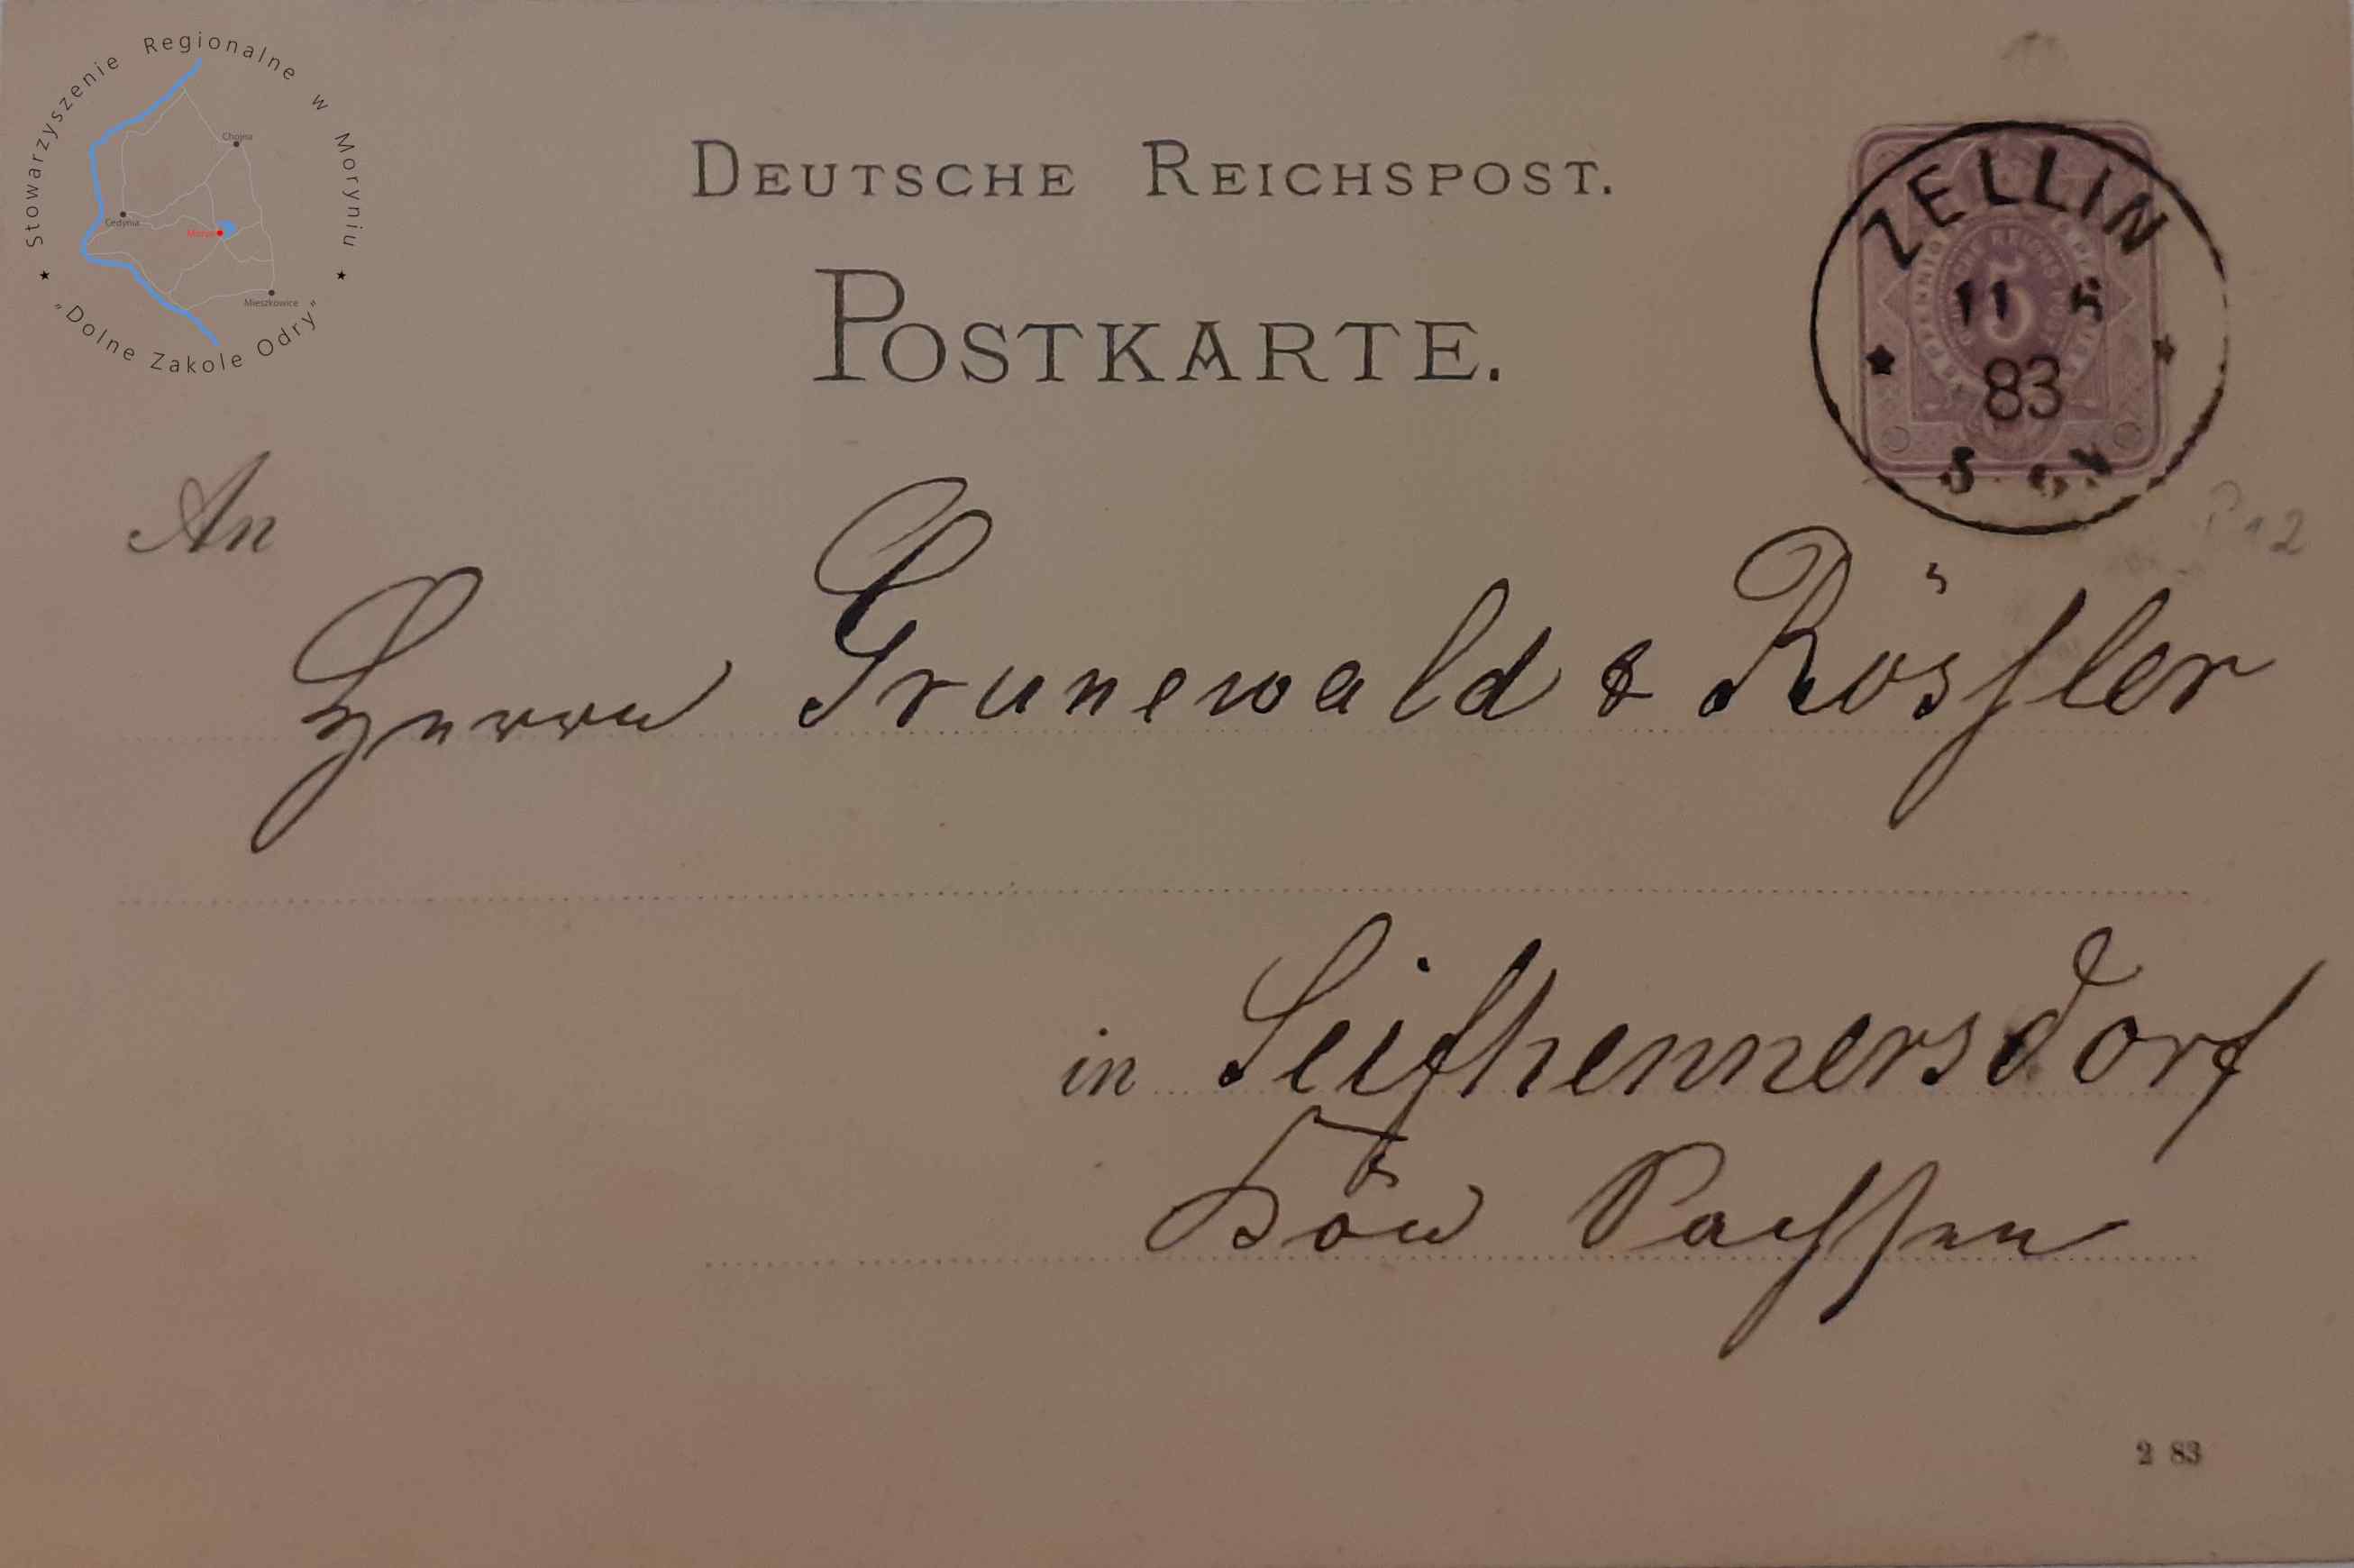 Stowarzyszenie Regionalne w Moryniu
"Dolne Zakole Odry"
Chojna
Cedynia
Moryń
Mieszkowice
DEUTSCHE REICHSPOST.
POSTKARTE.
ZELLIN
11 6
83
5
An
Herrn Grunewald & Rössler
in Seifhennersdorf
Sachsen
2 83